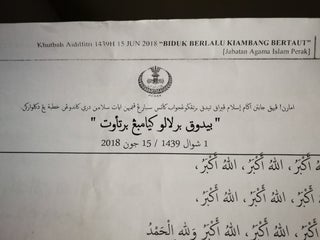 Khutbah Aidilfitri 1439H 15 JUN 2018 "BIDUK BERLALU KIAMBANG BERTAUT"
[Jabatan Agama Islam Perak]
امارن! ڤيهق جابتن اݢام إسلام ڤيراق تيدق برتڠݢوڠجواب كاتس سبارڠ تمبهن ايات سلاءين دري كاندوڠن خطبة يڠ دكلوركن
" بيدوق برلالو كيامبڠ برتاوت "
1 شوال 1439 / 15 جون 2018
اَللهُ أَكْبَرُ ، اَللهُ أَكْبَرُ ، اَللهُ أَكْبَرُ ،
اَللهُ أَكْبَرُ ، اَللهُ أَكْبَرُ ،
اَللهُ أَكْبَرُ ، اَللهُ أَكْبَرُ ،
اَللهُ أَكْبَرُ وَلِلّٰهِ الْحَمْدُ